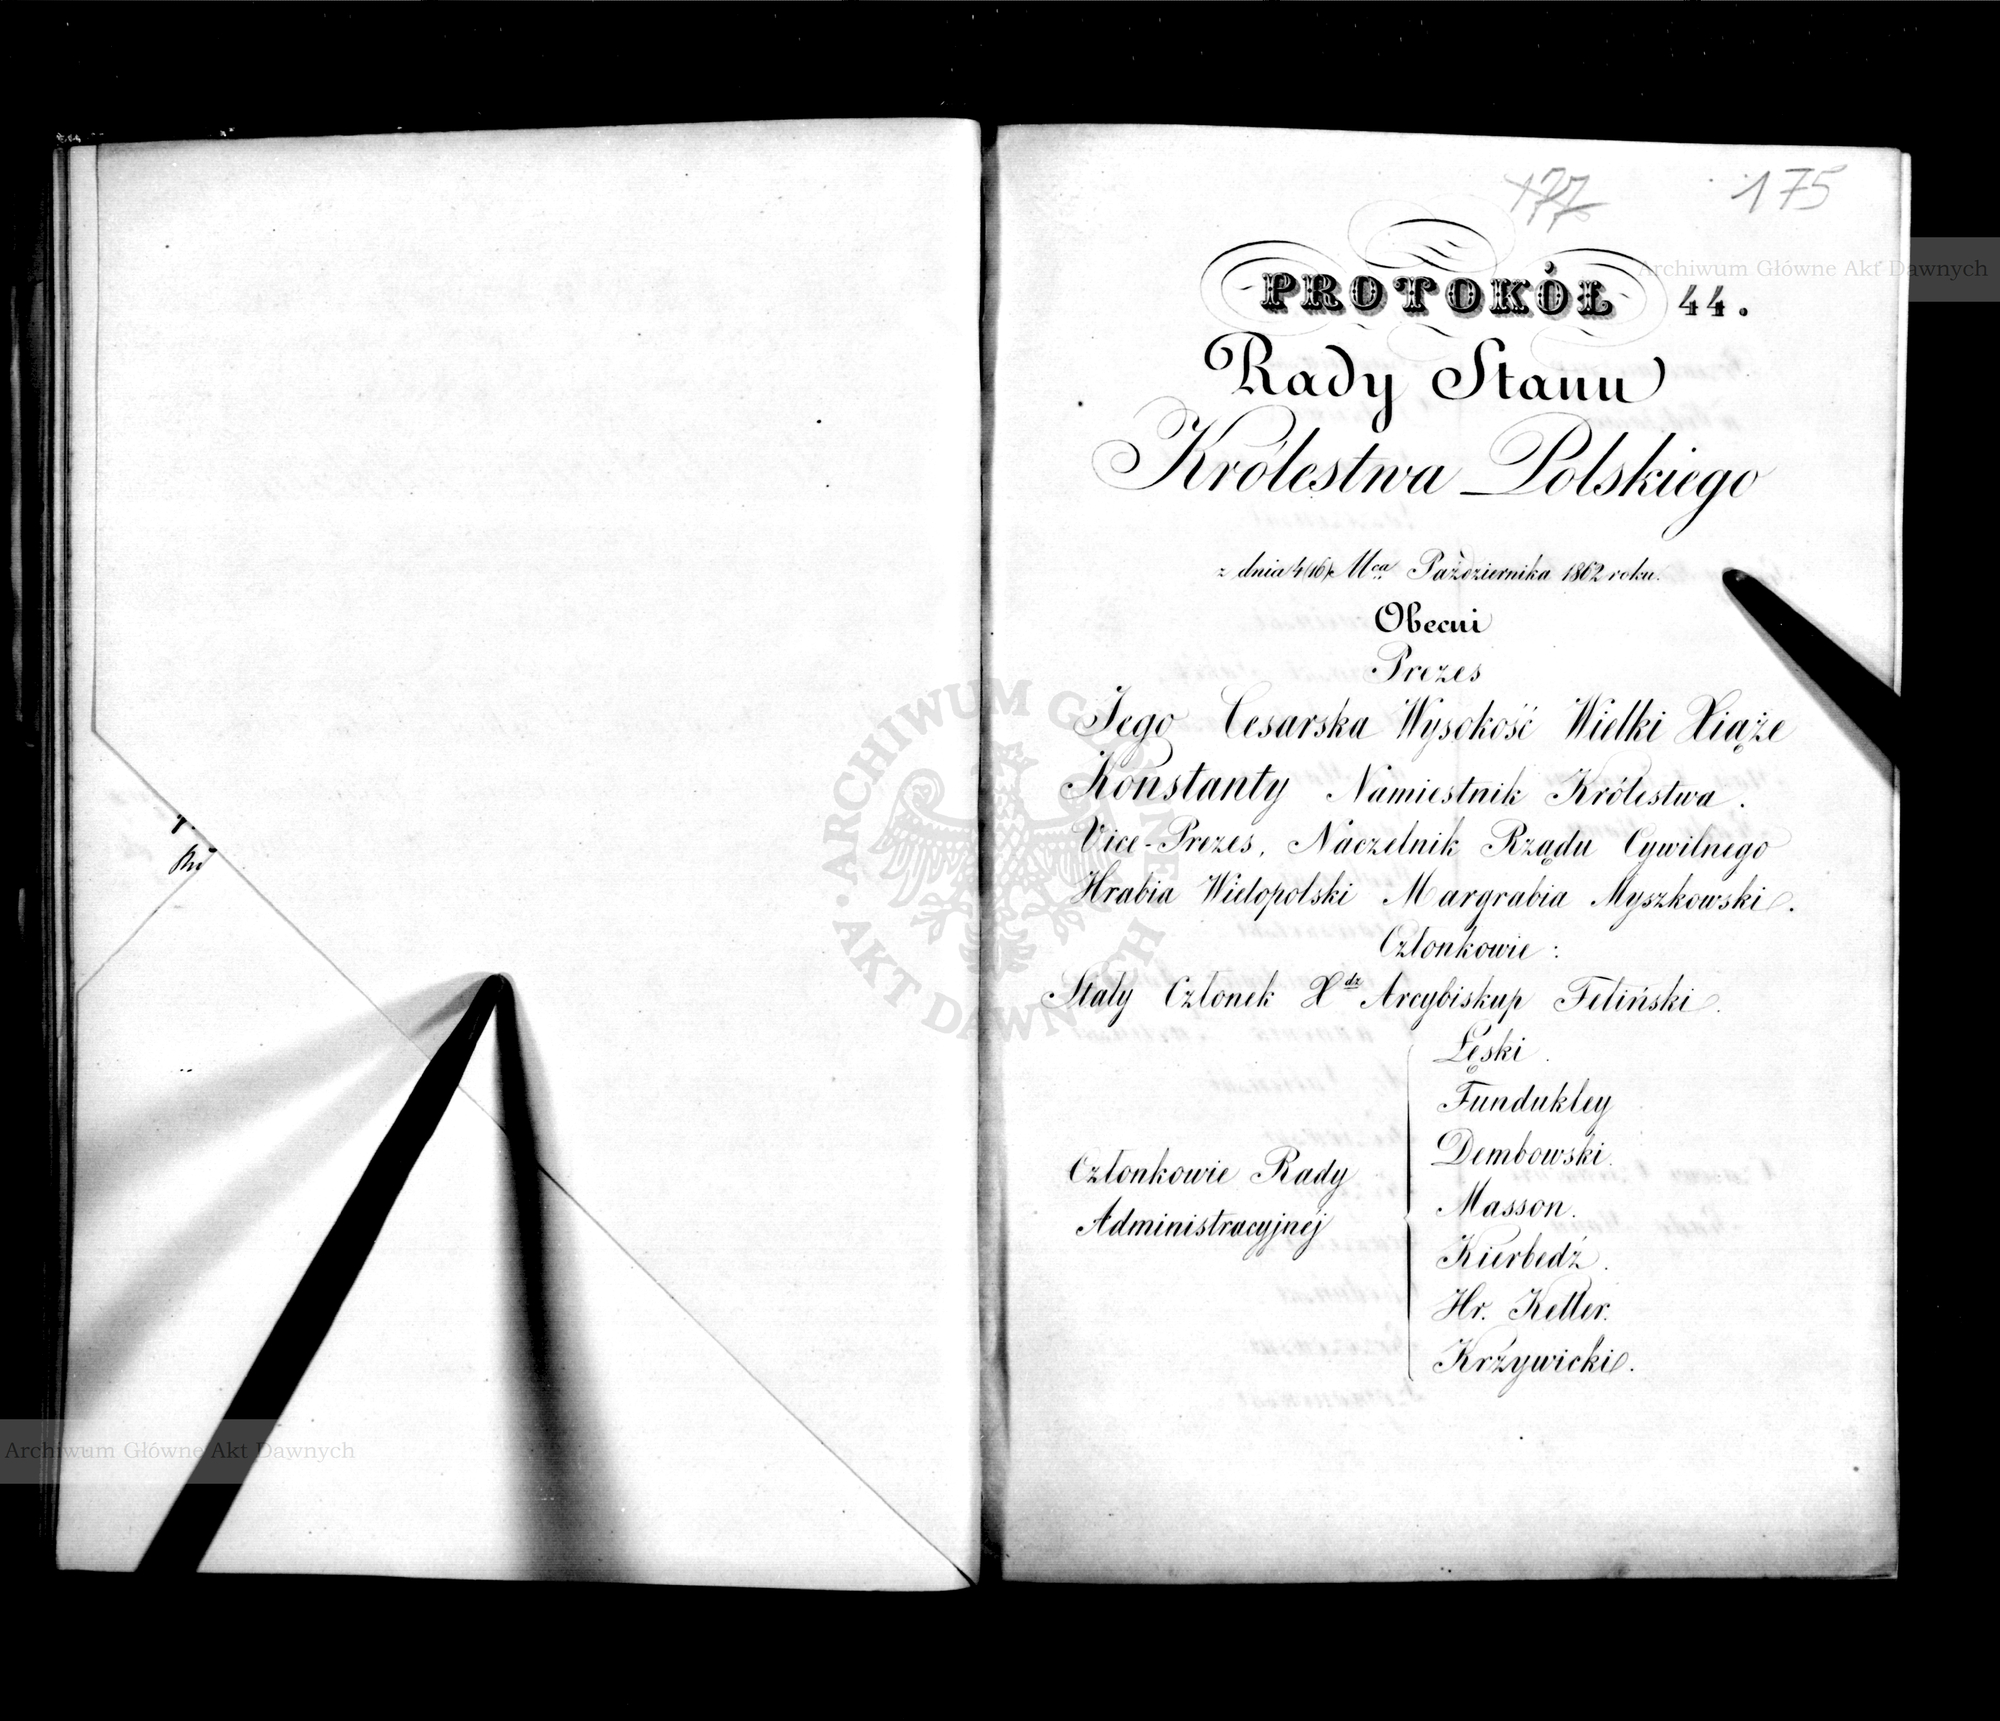 177 175
PROTOKÓŁ 44.
Rady Stanu
Królestwa Polskiego
z dnia 4/16 Mca Października 1862 roku.
Obecni
Prezes
Jego Cesarska Wysokość Wielki Xiąże
Konstanty Namiestnik Królestwa.
Vice-Prezes, Naczelnik Rządu Cywilnego
Hrabia Wielopolski Margrabia Myszkowski.
Członkowie:
Stały Członek Xdz Arcybiskup Feliński.
Członkowie Rady
Administracyjnej
Łęski.
Fundukley
Dembowski.
Masson.
Kierbedź.
Hr. Keller.
Krzywicki.
Archiwum Główne Akt Dawnych
Archiwum Główne Akt Dawnych
ARCHIWUM GŁÓWNE AKT DAWNYCH